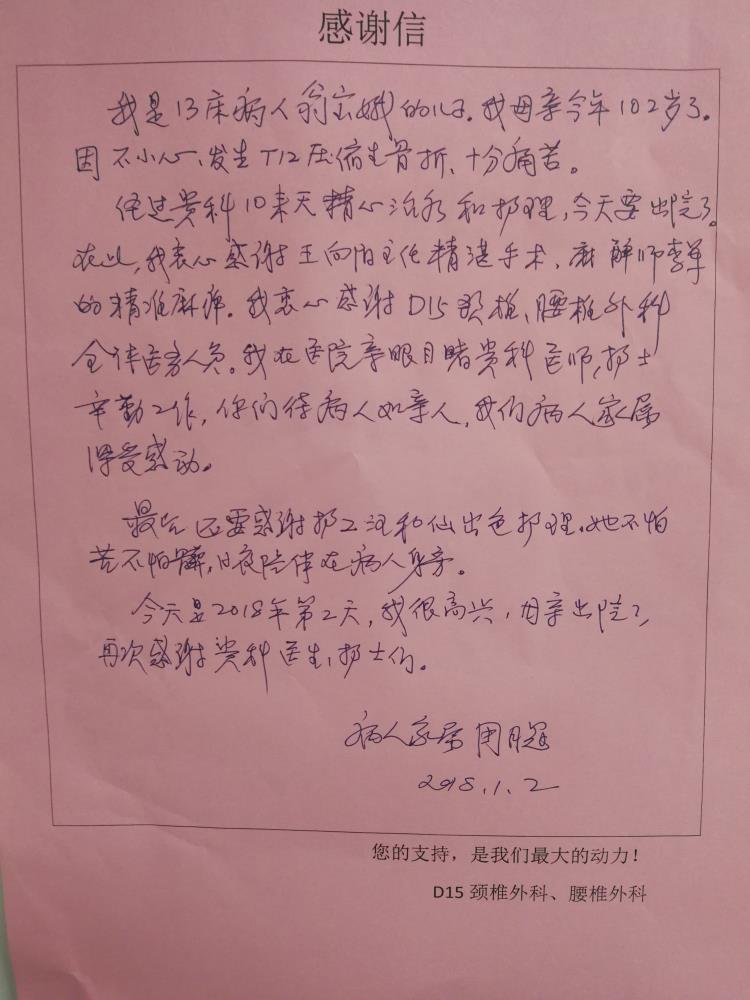 感谢信
我是13床病人翁云娥的儿子。我母亲今年102岁了。
因不小心、发生T12压缩生骨折、十分痛苦。
经过贵科10来天精心治疗和护理，今天要出院了。
在此，我衷心感谢王向阳主任精湛手术、麻醉师李军
的精准麻醉。我衷心感谢D15颈椎、腰椎外科
全体医务人员。我在医院亲眼目睹贵科医师，护士
辛勤工作，你们待病人如亲人，我们病人家属
深受感动。
最后还要感谢护工 和仙出色护理。她不怕
苦不怕髒，日夜陪伴在病人身旁。
今天是2018年第2天，我很高兴，母亲出院了，
再次感谢贵科医生、护士们。
病人家属 周月
2018.1.2
您的支持，是我们最大的动力！
D15 颈椎外科、腰椎外科